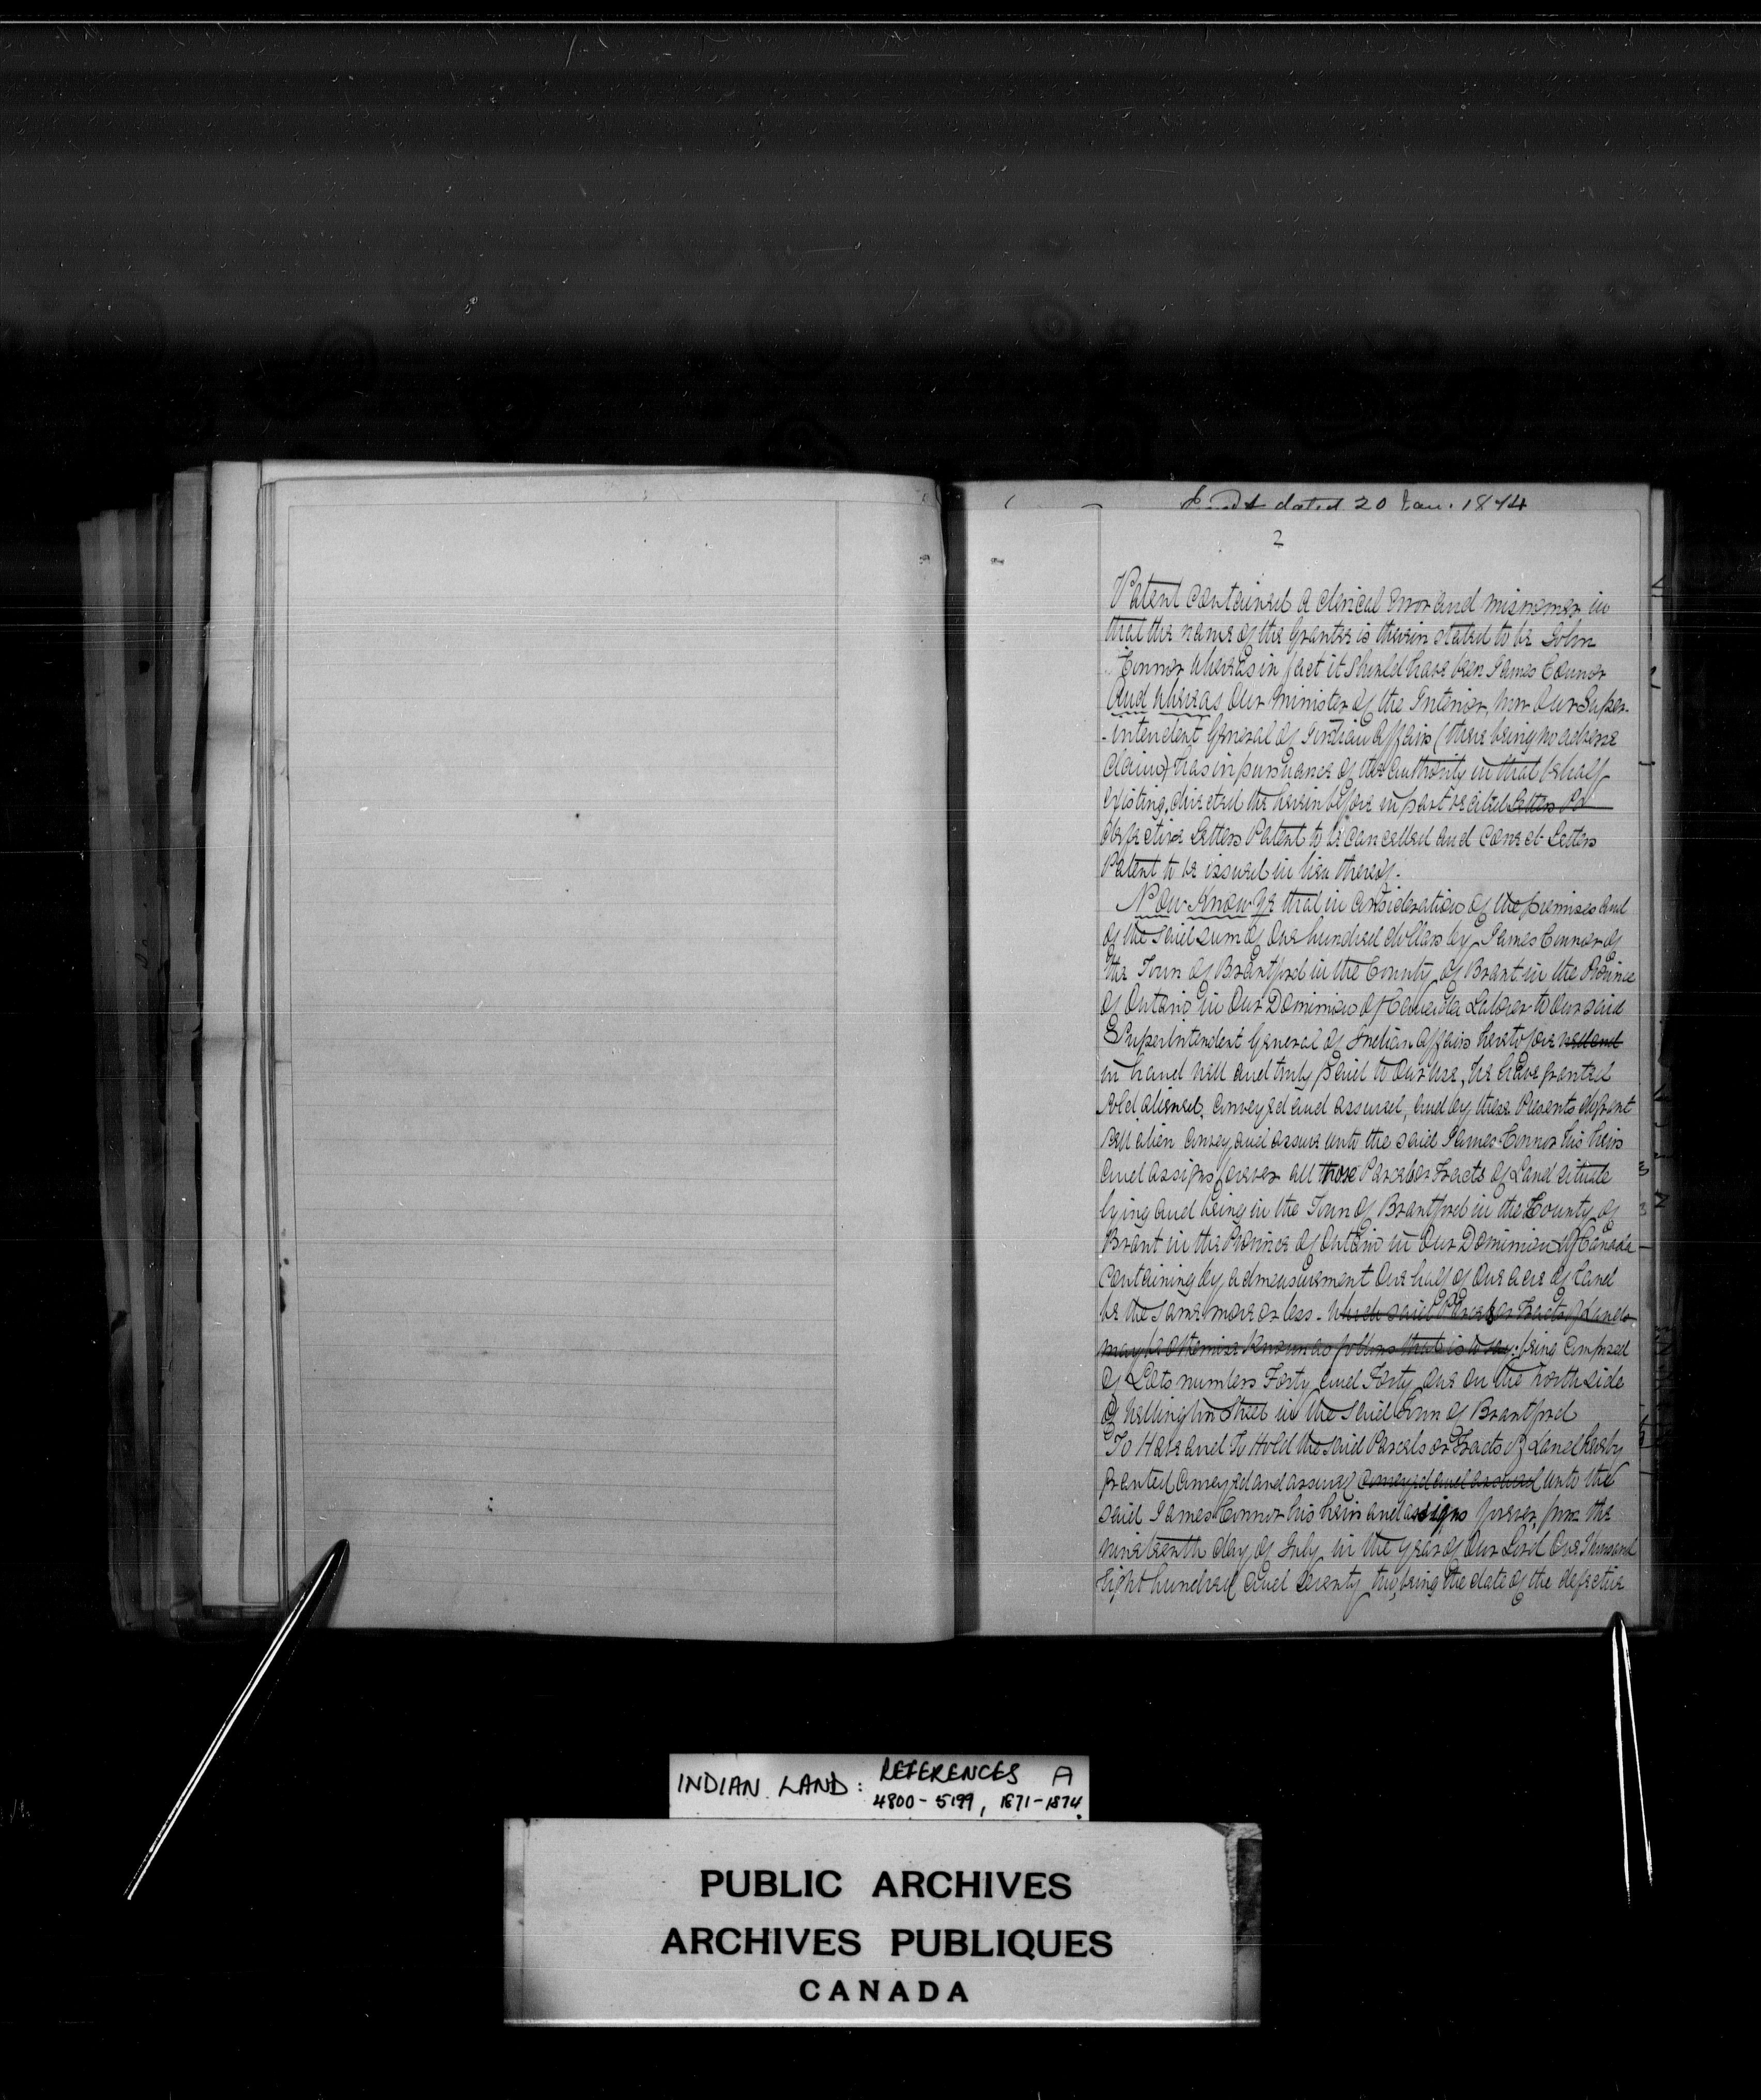 dated 20 Jan. 1874
2
Patent contained a clerical error and misnomer in
that the name of the Grantee is therein stated to be John
Connor whereas in fact it should have been James Connor
And whereas Our Minister of the Interior, now Our Super-
-intendent General of Indian Affairs (there being no adverse
claim) has in pursuance of the authority in that behalf
existing, directed the hereinbefore in part recited Letters Pa
defective Letters Patent to be cancelled and correct Letters
Patent to be issued in lieu thereof.
Now Know Ye that in consideration of the premises and
of the said sum of One hundred dollars by James Connor of
the Town of Brantford in the County of Brant in the Province
of Ontario in Our Dominion of Canada Laborer to Our said
Superintendent General of Indian Affairs heretofore well and
in hand well and truly paid to Our use, We have granted
sold aliened, conveyed and assured, and by these Presents do grant
sell alien convey and assure unto the said James Connor his heirs
and assigns forever all those Parcels or Tracts of Land situate
lying and being in the Town of Brantford in the County of
Brant in the Province of Ontario in Our Dominion of Canada
containing by admeasurement One half of One acre of Land
be the same more or less - Which said Parcels or Tracts of Lands
may be otherwise Known as follows that is to say: being composed
of Lots numbers Forty and Forty one on the north side
of Wellington Street in the said Town of Brantford
To Have and To Hold the said Parcels or Tracts of Land hereby
granted conveyed and assured conveyed and assured unto the
said James Connor his heirs and assigns forever, from the
nineteenth day of July in the year of Our Lord One Thousand
Eight hundred and Seventy two, being the date of the defective
INDIAN LAND: REFERENCES A
4800-5199, 1871-1874.
PUBLIC ARCHIVES
ARCHIVES PUBLIQUES
CANADA